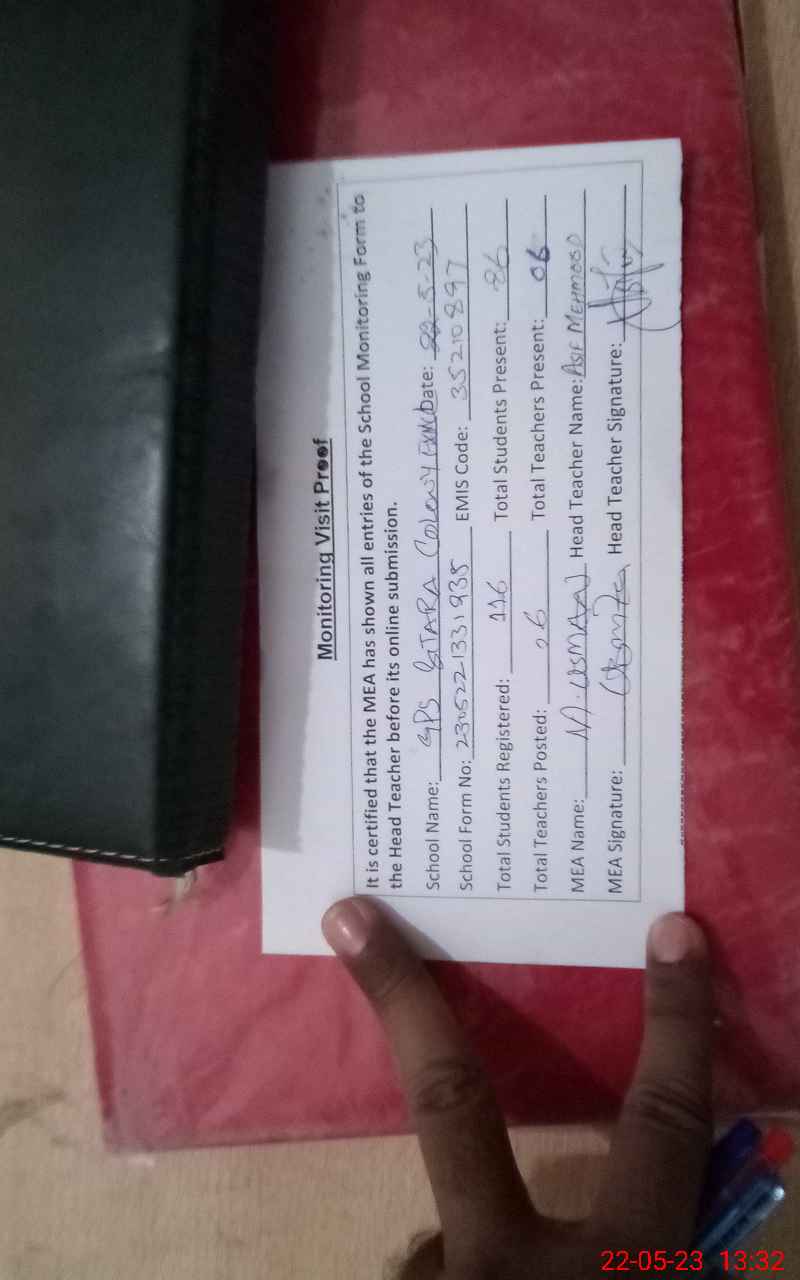 Monitoring Visit Proof
It is certified that the MEA has shown all entries of the School Monitoring Form to
the Head Teacher before its online submission.
School Name: GPS SITARA COLONY Date: 22-5-23
School Form No: 2305221331935 EMIS Code: 35210897
Total Students Registered: 116 Total Students Present: 86
Total Teachers Posted: 06 Total Teachers Present: 06
MEA Name: M. USMAN Head Teacher Name: ASIF MEHMOOD
MEA Signature: Head Teacher Signature:
22-05-23 13:32